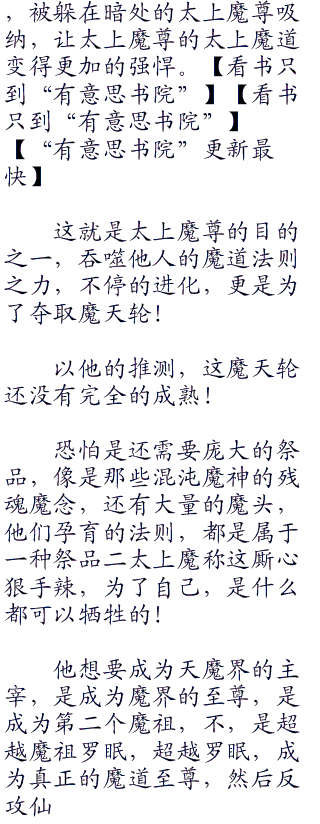 ，被躲在暗处的太上魔尊吸
纳，让太上魔尊的太上魔道
变得更加的强悍。【看书只
到“有意思书院”】【看书
只到“有意思书院”】
【“有意思书院”更新最
快】
这就是太上魔尊的目的
之一，吞噬他人的魔道法则
之力，不停的进化，更是为
了夺取魔天轮！
以他的推测，这魔天轮
还没有完全的成熟！
恐怕是还需要庞大的祭
品，像是那些混沌魔神的残
魂魔念，还有大量的魔头，
他们孕育的法则，都是属于
一种祭品二太上魔称这厮心
狠手辣，为了自己，是什么
都可以牺牲的！
他想要成为天魔界的主
宰，是成为魔界的至尊，是
成为第二个魔祖，不，是超
越魔祖罗眠，超越罗眠，成
为真正的魔道至尊，然后反
攻仙